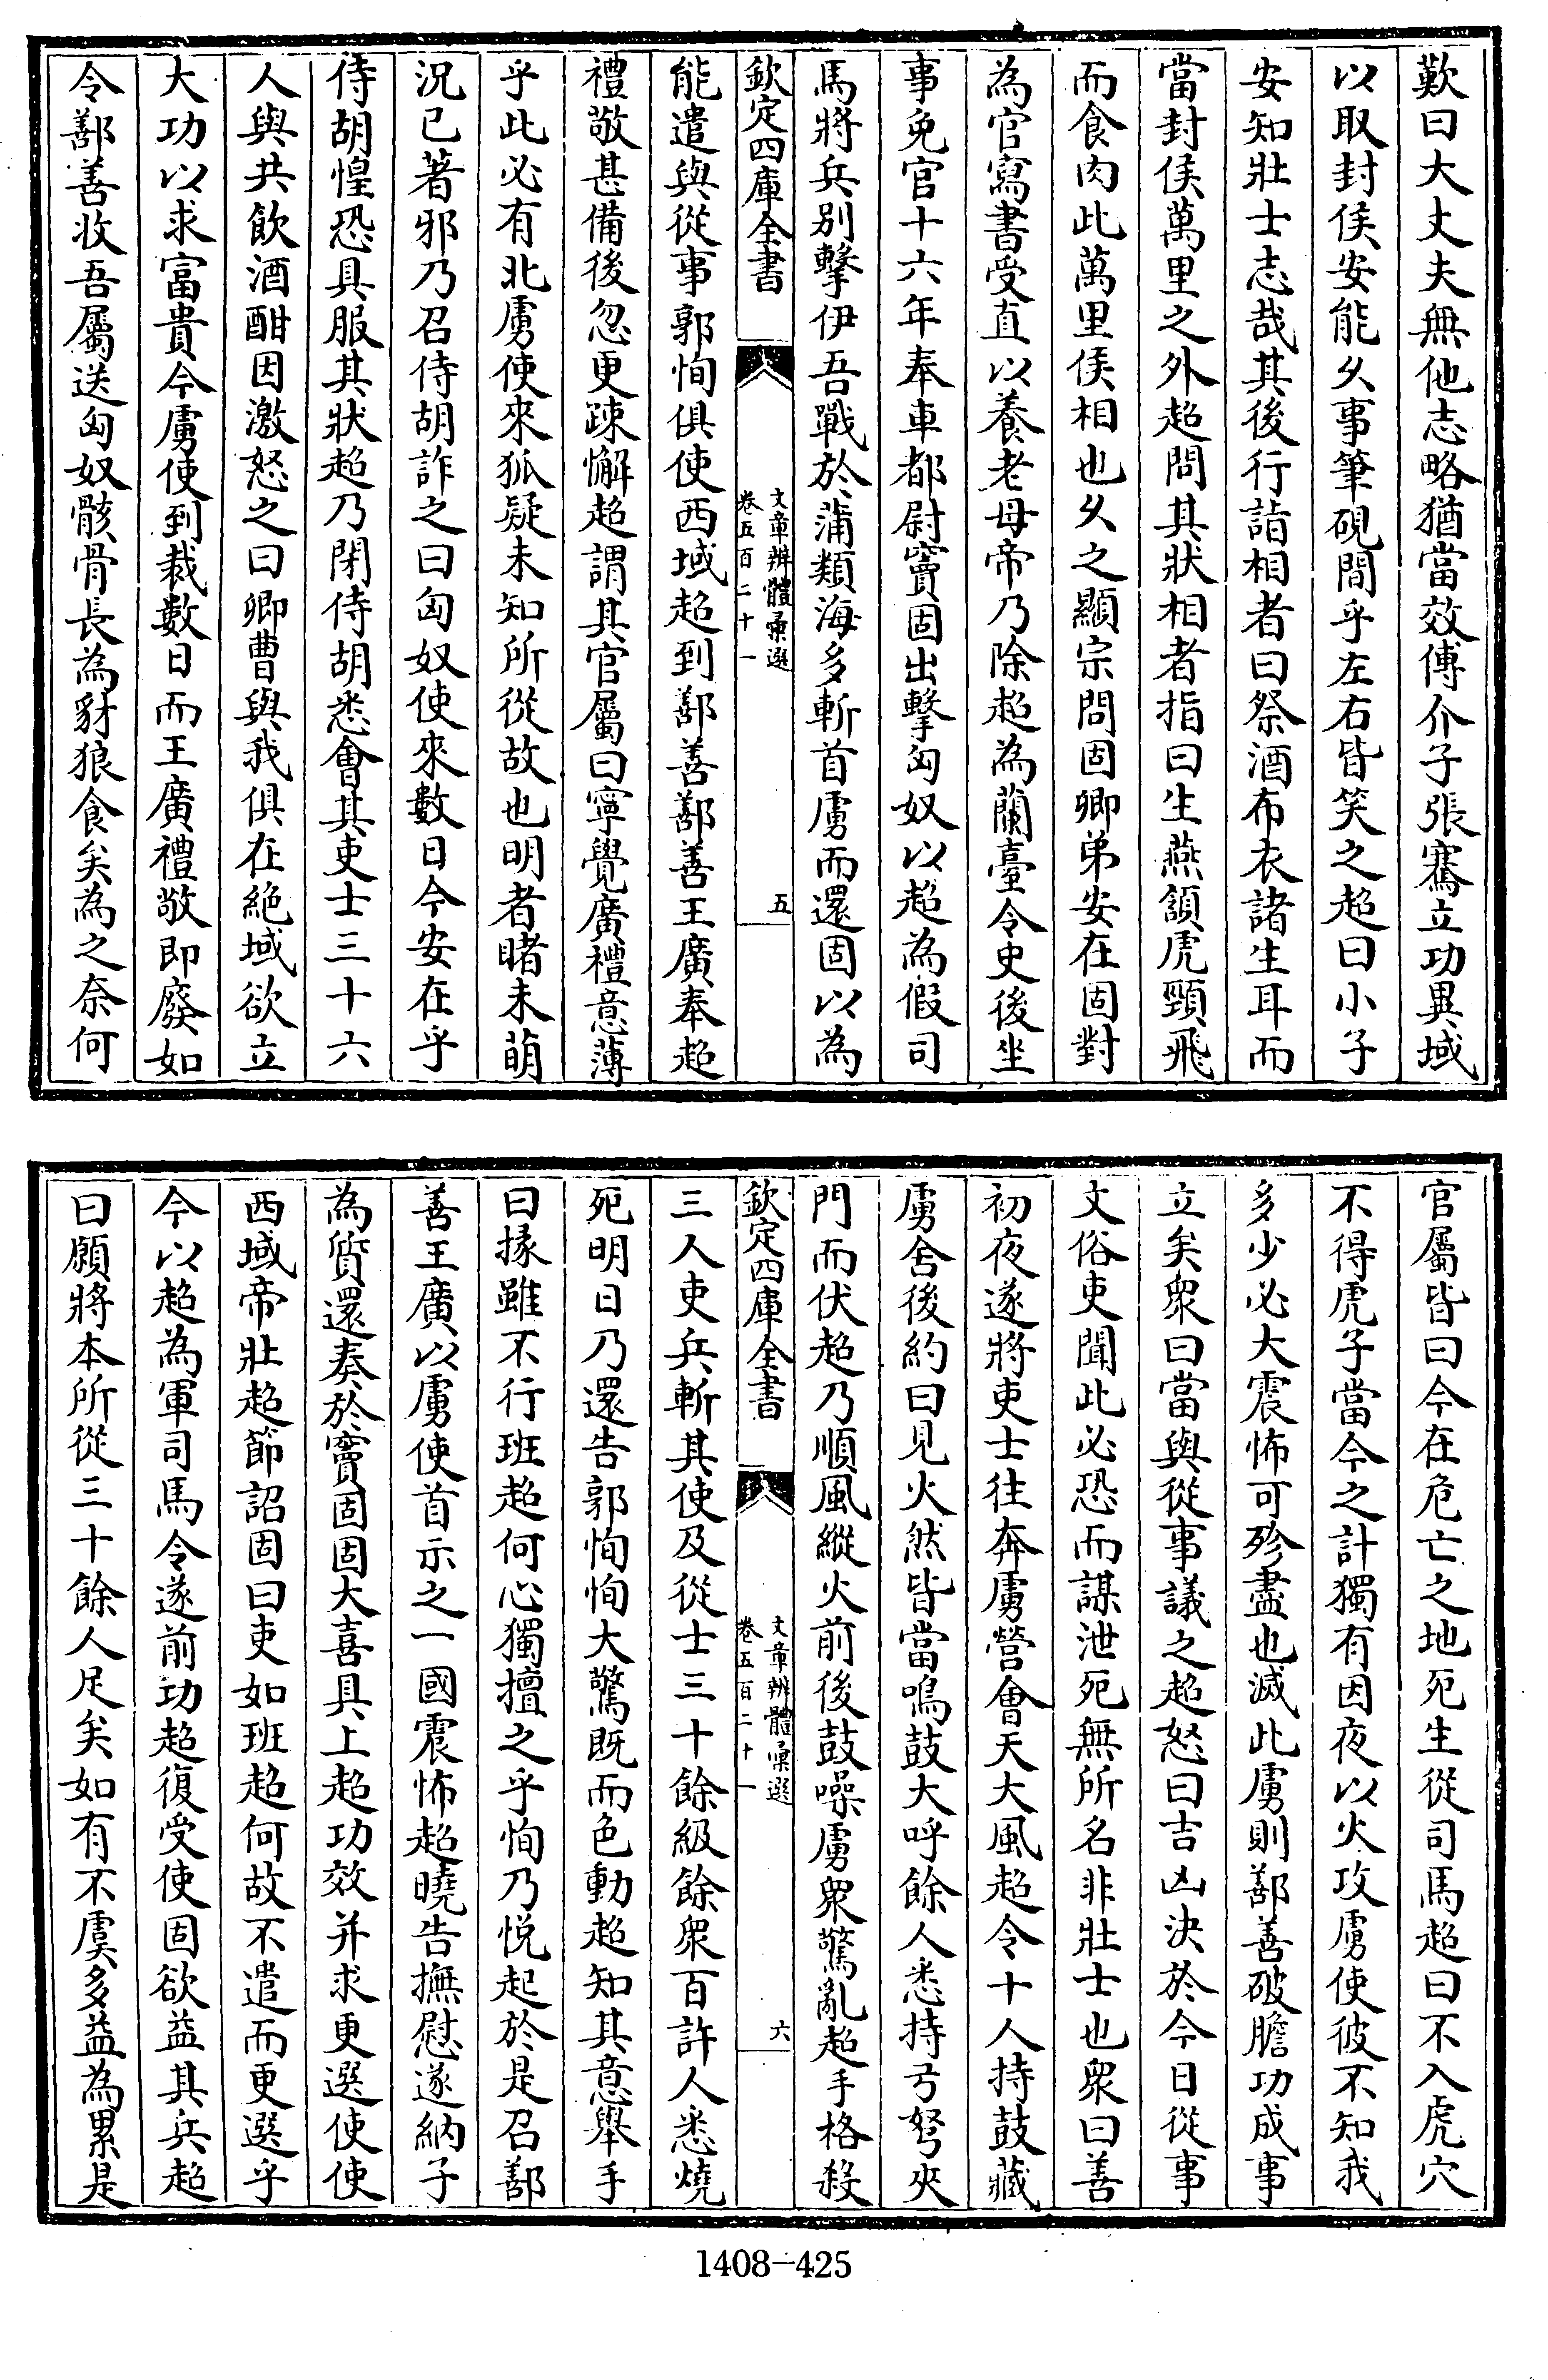 歎曰大丈夫無他志略猶當效傅介子張騫立功異域
以取封侯安能久事筆硯間乎左右皆笑之超曰小子
安知壯士志哉其後行詣相者曰祭酒布衣諸生耳而
當封侯萬里之外超問其狀相者指曰生燕頷虎頸飛
而食肉此萬里侯相也久之顯宗問固卿弟安在固對
為官寫書受直以養老母帝乃除超為蘭臺令史後坐
事免官十六年奉車都尉竇固出擊匈奴以超為假司
馬將兵別擊伊吾戰於蒲類海多斬首虜而還固以為
欽定四庫全書
文章辨體彙選
卷五百二十一
五
能遣與從事郭恂俱使西域超到鄯善鄯善王廣奉超
禮敬甚備後忽更疎懈超謂其官屬曰寧覺廣禮意薄
乎此必有北虜使來狐疑未知所從故也明者睹未萌
況已著邪乃召侍胡詐之曰匈奴使來數日今安在乎
侍胡惶恐具服其狀超乃閉侍胡悉會其吏士三十六
人與共飲酒酣因激怒之曰卿曹與我俱在絕域欲立
大功以求富貴今虜使到裁數日而王廣禮敬即廢如
令鄯善收吾屬送匈奴骸骨長為豺狼食矣為之奈何
官屬皆曰今在危亡之地死生從司馬超曰不入虎穴
不得虎子當今之計獨有因夜以火攻虜使彼不知我
多少必大震怖可殄盡也滅此虜則鄯善破膽功成事
立矣衆曰當與從事議之超怒曰吉凶決於今日從事
文俗吏聞此必恐而謀泄死無所名非壯士也衆曰善
初夜遂將吏士往奔虜營會天大風超令十人持鼓藏
虜舍後約曰見火然皆當鳴鼓大呼餘人悉持弓弩夾
門而伏超乃順風縱火前後鼓噪虜衆驚亂超手格殺
欽定四庫全書
文章辨體彙選
卷五百二十一
六
三人吏兵斬其使及從士三十餘級餘衆百許人悉燒
死明日乃還告郭恂恂大驚既而色動超知其意舉手
曰掾雖不行班超何心獨擅之乎恂乃悅起於是召鄯
善王廣以虜使首示之一國震怖超曉告撫慰遂納子
為質還奏於竇固固大喜具上超功效并求更選使使
西域帝壯超節詔固曰吏如班超何故不遣而更選乎
今以超為軍司馬令遂前功超復受使固欲益其兵超
曰願將本所從三十餘人足矣如有不虞多益為累是
1408-425